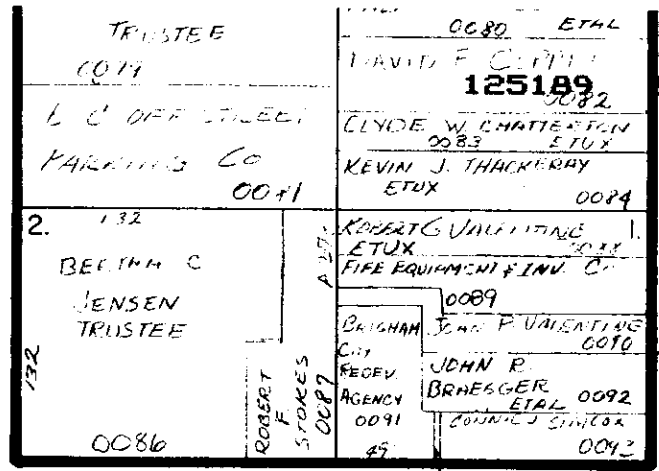 TRUSTEE
0079
L C OFF STREET
PARKING CO
0081
0080 ETAL
DAVID F
125189
0082
CLYDE W. CHATTERTON
0083 ETUX
KEVIN J. THACKERAY
ETUX
0084
2.
132
BERTHA C
JENSEN
TRUSTEE
132
0086
ROBERT
F
STOKES
0087
1.
ROBERT G VALENTINE
ETUX
FIFE EQUIPMENT & INV. CO
0089
BRIGHAM
CITY
REDEV.
AGENCY
0091
JOAN P. VALENTINE
0090
JOHN R.
BRAEGGER 0092
ETAL
CONNIE J SIMCOX